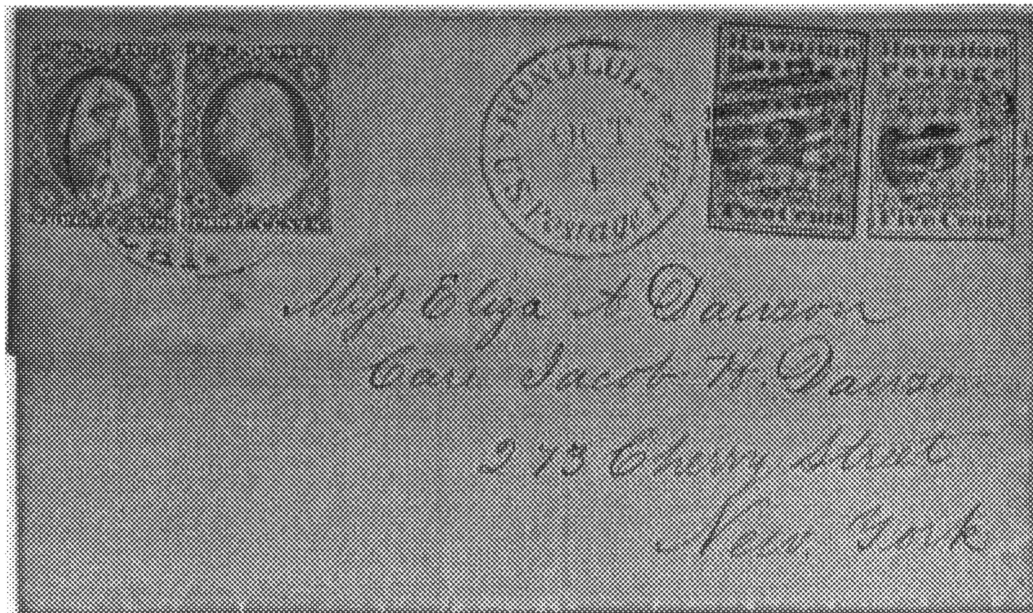 HONOLULU
OCT
1
U.S. Postage Paid
Hawaiian
Postage
2
Two Cents
Hawaiian
Postage
Five Cents
Cal.
Miss Eliza A Dawson
Care Jacob H. Dawson
273 Cherry Street
New York